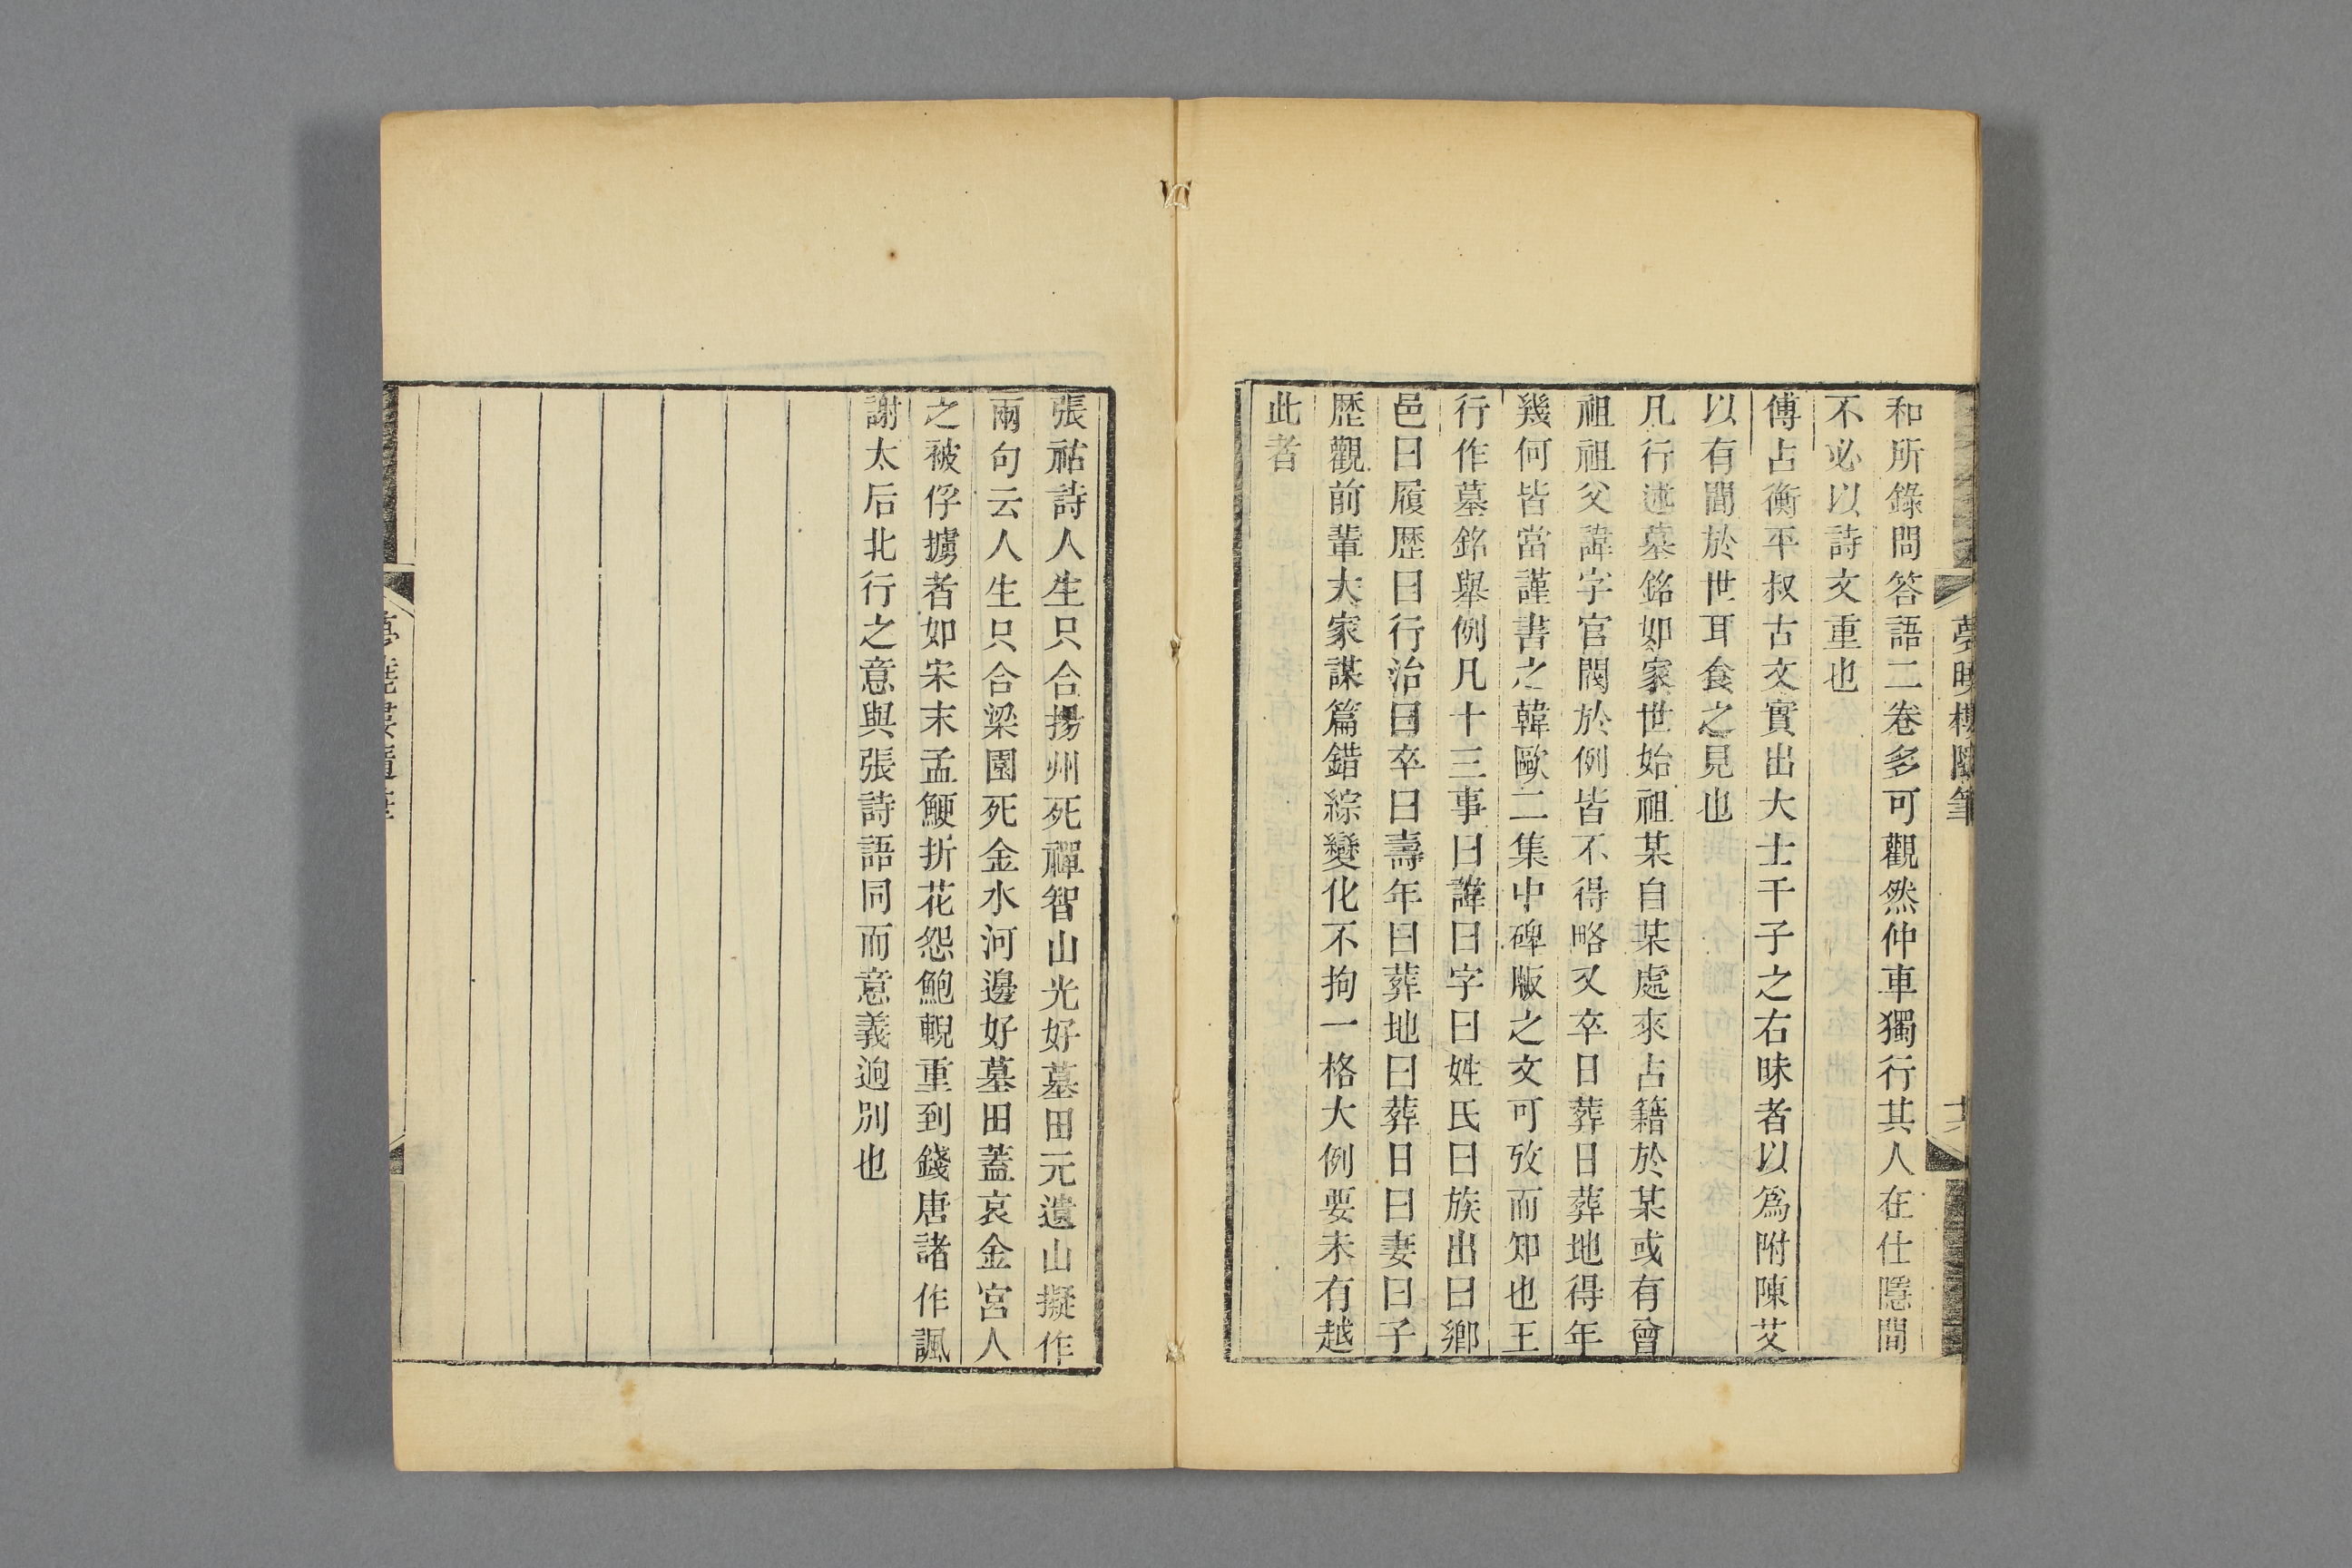 夢曉樓隨筆
和所錄問答語二卷多可觀然仲車獨行其人在仕隱間
不必以詩文重也
傅占衡平叔古文實出大士千子之右昧者以爲附陳艾
以有聞於世耳食之見也
凡行述墓銘如家世始祖某自某處來占籍於某或有曾
祖祖父諱字官閥於例皆不得略又卒日葬日葬地得年
幾何皆當謹書之韓歐二集中碑版之文可攷而知也王
行作墓銘舉例凡十三事曰諱曰字曰姓氏曰族出曰鄉
邑曰履歷曰行治曰卒曰壽年曰葬地曰葬日曰妻曰子
歷觀前輩大家謀篇錯綜變化不拘一格大例要未有越
此者
張祜詩人生只合揚州死禪智山光好墓田元遺山擬作
兩句云人生只合梁園死金水河邊好墓田蓋哀金宮人
之被俘擄者如宋末孟鯁折花怨鮑輗重到錢唐諸作諷
謝太后北行之意與張詩語同而意義迥別也